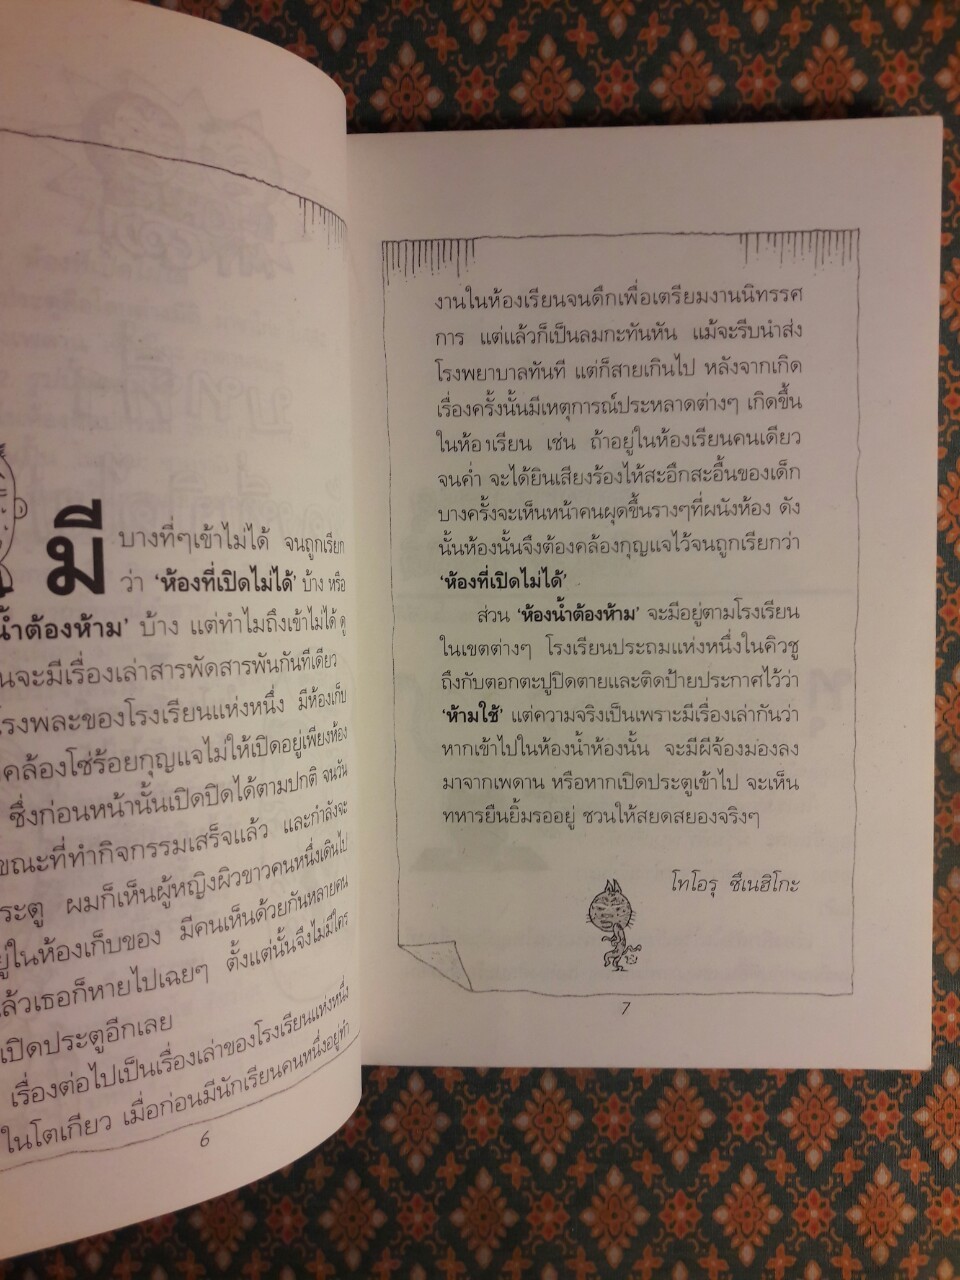 มี
บางที่ๆเข้าไม่ได้ จนถูกเรียก
ว่า ‘ห้องที่เปิดไม่ได้’ บ้าง หรือ
น้ำต้องห้าม’ บ้าง แต่ทำไมถึงเข้าไม่ได้ ดู
นจะมีเรื่องเล่าสารพัดสารพันกันทีเดียว
โรงพละของโรงเรียนแห่งหนึ่ง มีห้องเก็บ
คล้องโซ่ร้อยกุญแจไม่ให้เปิดอยู่เพียงห้อง
ซึ่งก่อนหน้านั้นเปิดปิดได้ตามปกติ จนวัน
ขณะที่ทำกิจกรรมเสร็จแล้ว และกำลังจะ
ระตู ผมก็เห็นผู้หญิงผิวขาวคนหนึ่งเดินไป
ยู่ในห้องเก็บของ มีคนเห็นด้วยกันหลายคน
ล้วเธอก็หายไปเฉยๆ ตั้งแต่นั้นจึงไม่มีใคร
เปิดประตูอีกเลย
เรื่องต่อไปเป็นเรื่องเล่าของโรงเรียนแห่งหนึ่ง
ในโตเกียว เมื่อก่อนมีนักเรียนคนหนึ่งอยู่ทำ
6
งานในห้องเรียนจนดึกเพื่อเตรียมงานนิทรรศ
การ แต่แล้วก็เป็นลมกะทันหัน แม้จะรีบนำส่ง
โรงพยาบาลทันที แต่ก็สายเกินไป หลังจากเกิด
เรื่องครั้งนั้นมีเหตุการณ์ประหลาดต่างๆ เกิดขึ้น
ในห้องเรียน เช่น ถ้าอยู่ในห้องเรียนคนเดียว
จนค่ำ จะได้ยินเสียงร้องไห้สะอึกสะอื้นของเด็ก
บางครั้งจะเห็นหน้าคนผุดขึ้นรางๆที่ผนังห้อง ดัง
นั้นห้องนั้นจึงต้องคล้องกุญแจไว้จนถูกเรียกว่า
‘ห้องที่เปิดไม่ได้’
ส่วน ‘ห้องน้ำต้องห้าม’ จะมีอยู่ตามโรงเรียน
ในเขตต่างๆ โรงเรียนประถมแห่งหนึ่งในคิวชู
ถึงกับตอกตะปูปิดตายและติดป้ายประกาศไว้ว่า
‘ห้ามใช้’ แต่ความจริงเป็นเพราะมีเรื่องเล่ากันว่า
หากเข้าไปในห้องน้ำห้องนั้น จะมีผีจ้องมองลง
มาจากเพดาน หรือหากเปิดประตูเข้าไป จะเห็น
ทหารยืนยิ้มรออยู่ ชวนให้สยดสยองจริงๆ
โทโอรุ ชึเนฮิโกะ
7